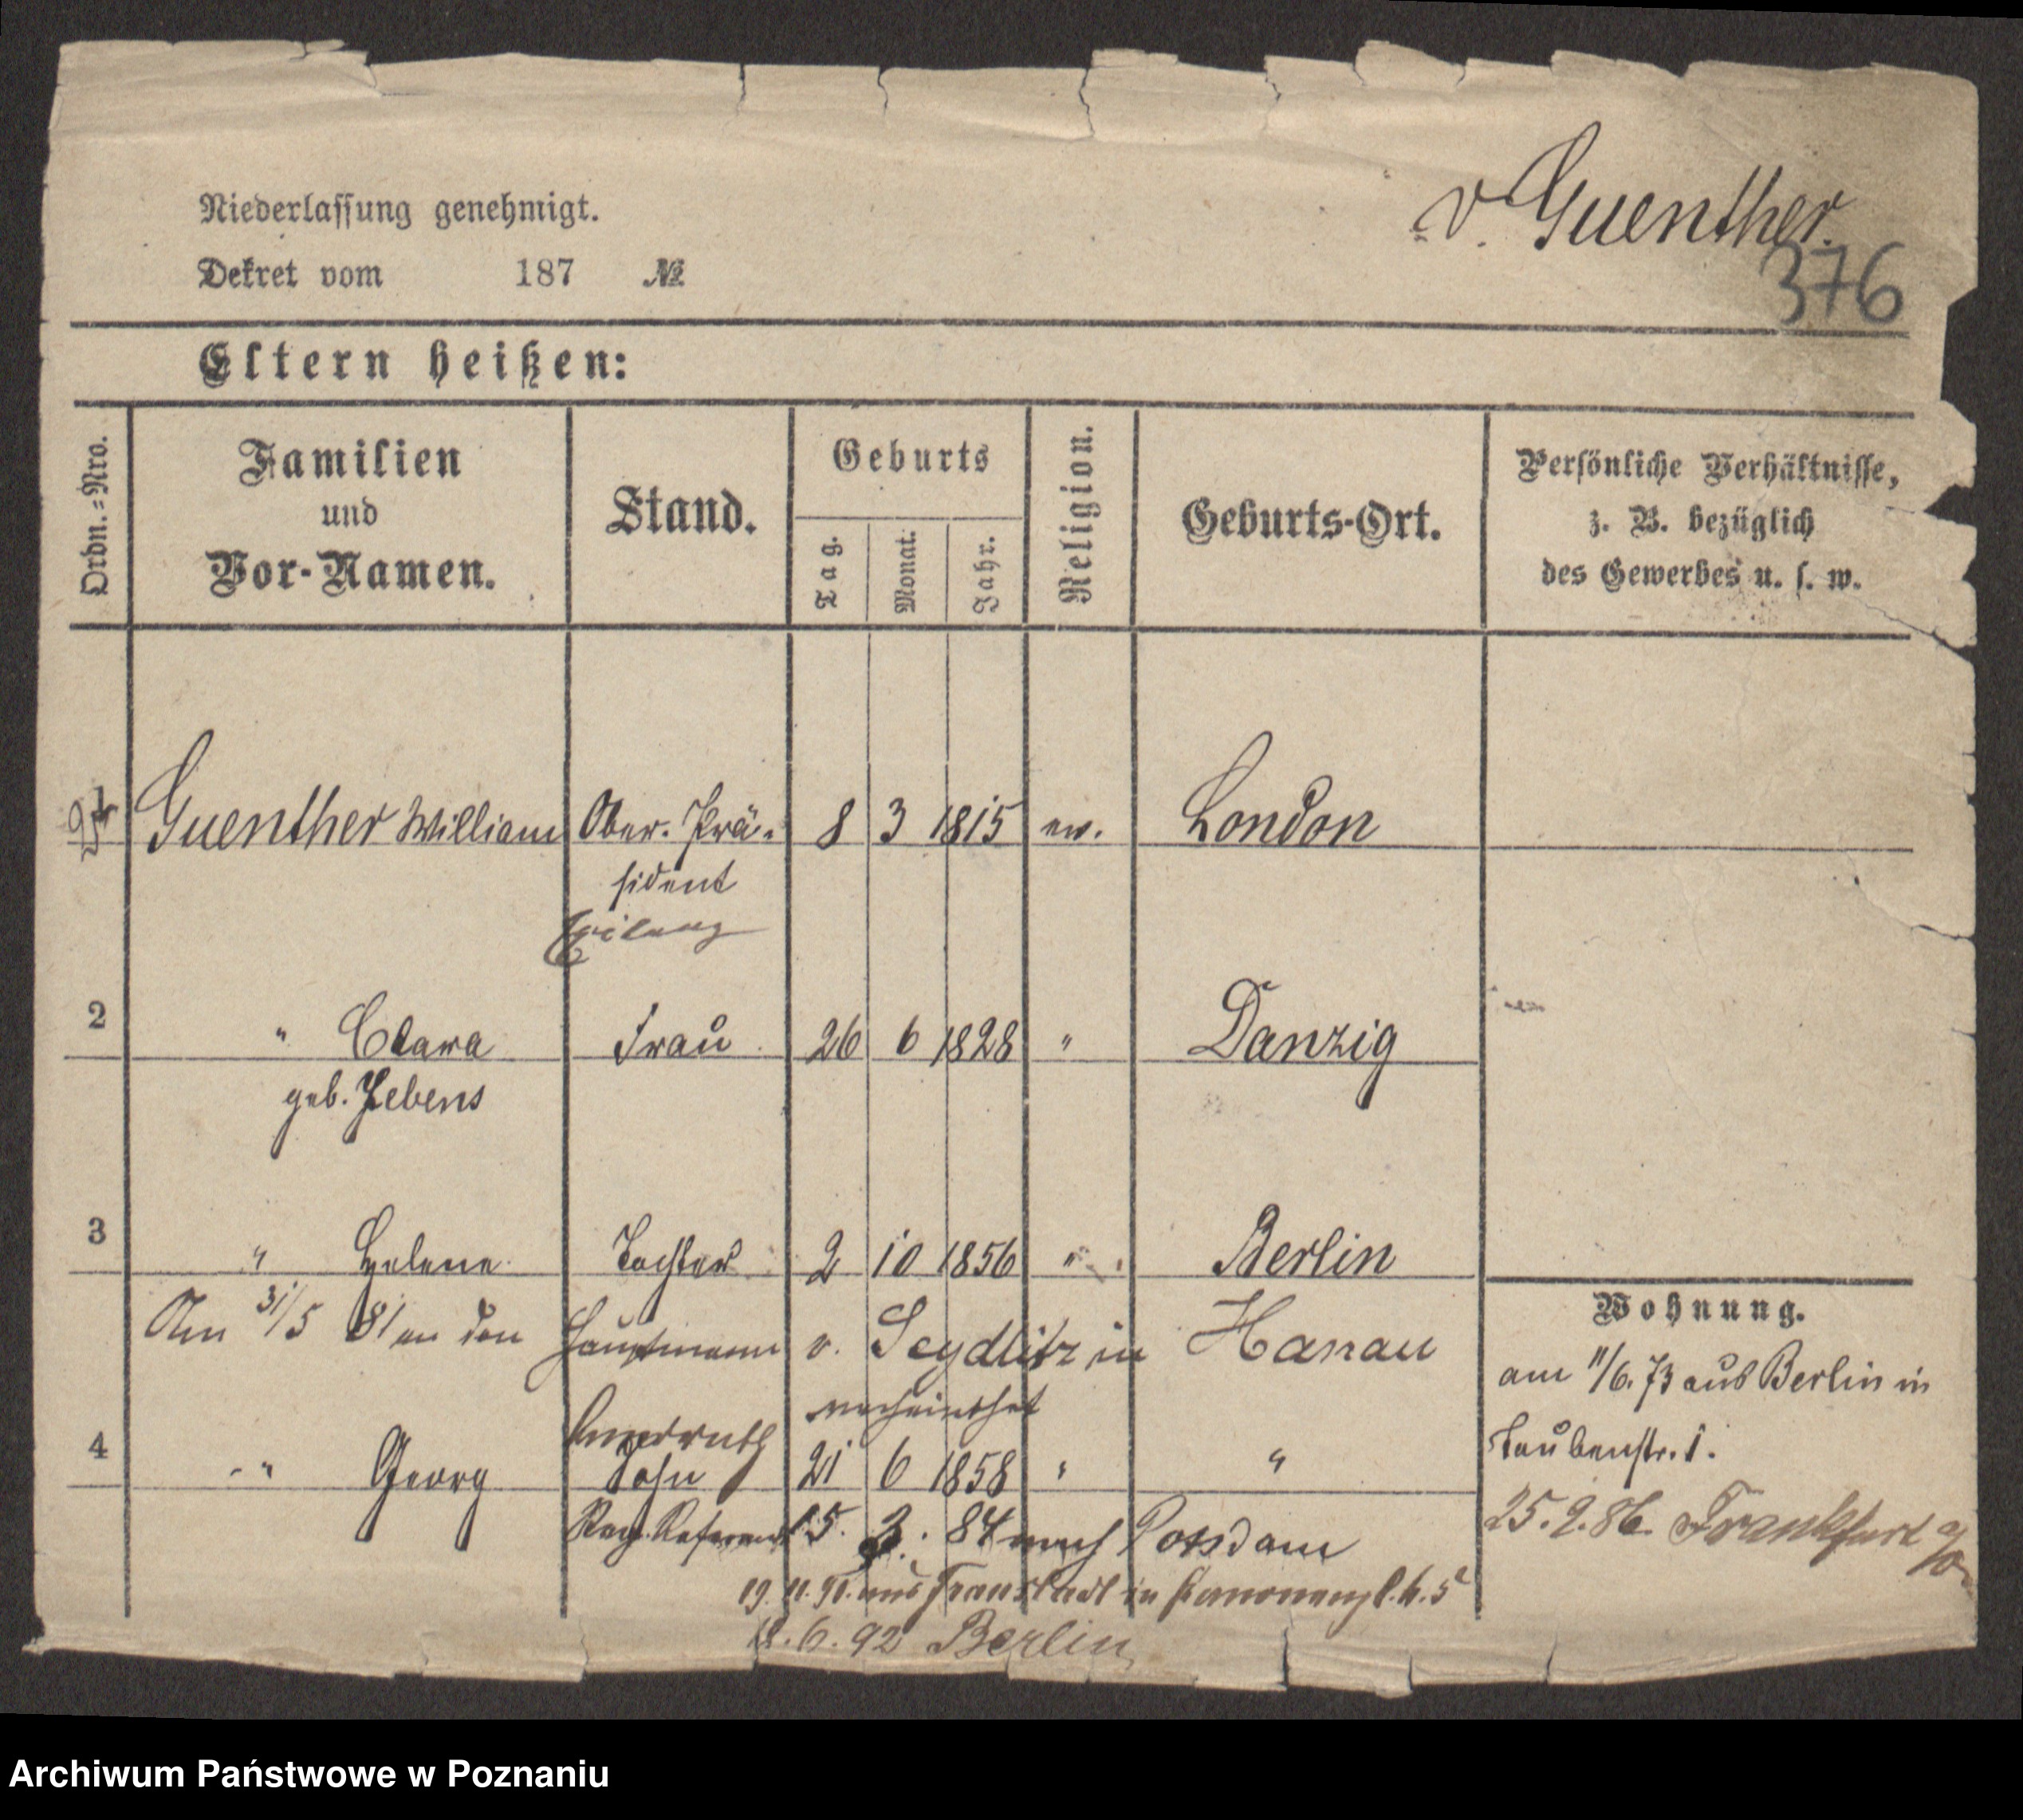 Niederlassung genehmigt.
v. Guenther.
376
Dekret vom 187 №
Eltern heißen:
Ordn.-Nro.
Familien
und
Vor-Namen.
Stand.
Geburts
Tag.
Monat.
Jahr.
Religion.
Geburts-Ort.
Persönliche Verhältnisse,
z. B. bezüglich
des Gewerbes u. s. w.
1 Guenther William Ober-Prä- 8 3 1815 ev. London
sident
2 " Clara Frau 26 6 1828 " Danzig
geb. Jebens
3 " Helene Tochter 2 10 1856 " Berlin
Am 31/5 81 an den Hauptmann v. Seydlitz in Hanau
verheirathet
4 " Georg Sohn 21 6 1858 " "
Reg. Referend. 15. 3. 84 nach Potsdam
19. 11. 91. aus Fraustadt in
18. 6. 92 Berlin
Wohnung.
am 11/6. 73 aus Berlin in
Taubenstr. 1.
25. 9. 86. Frankfurt a/O
Archiwum Państwowe w Poznaniu